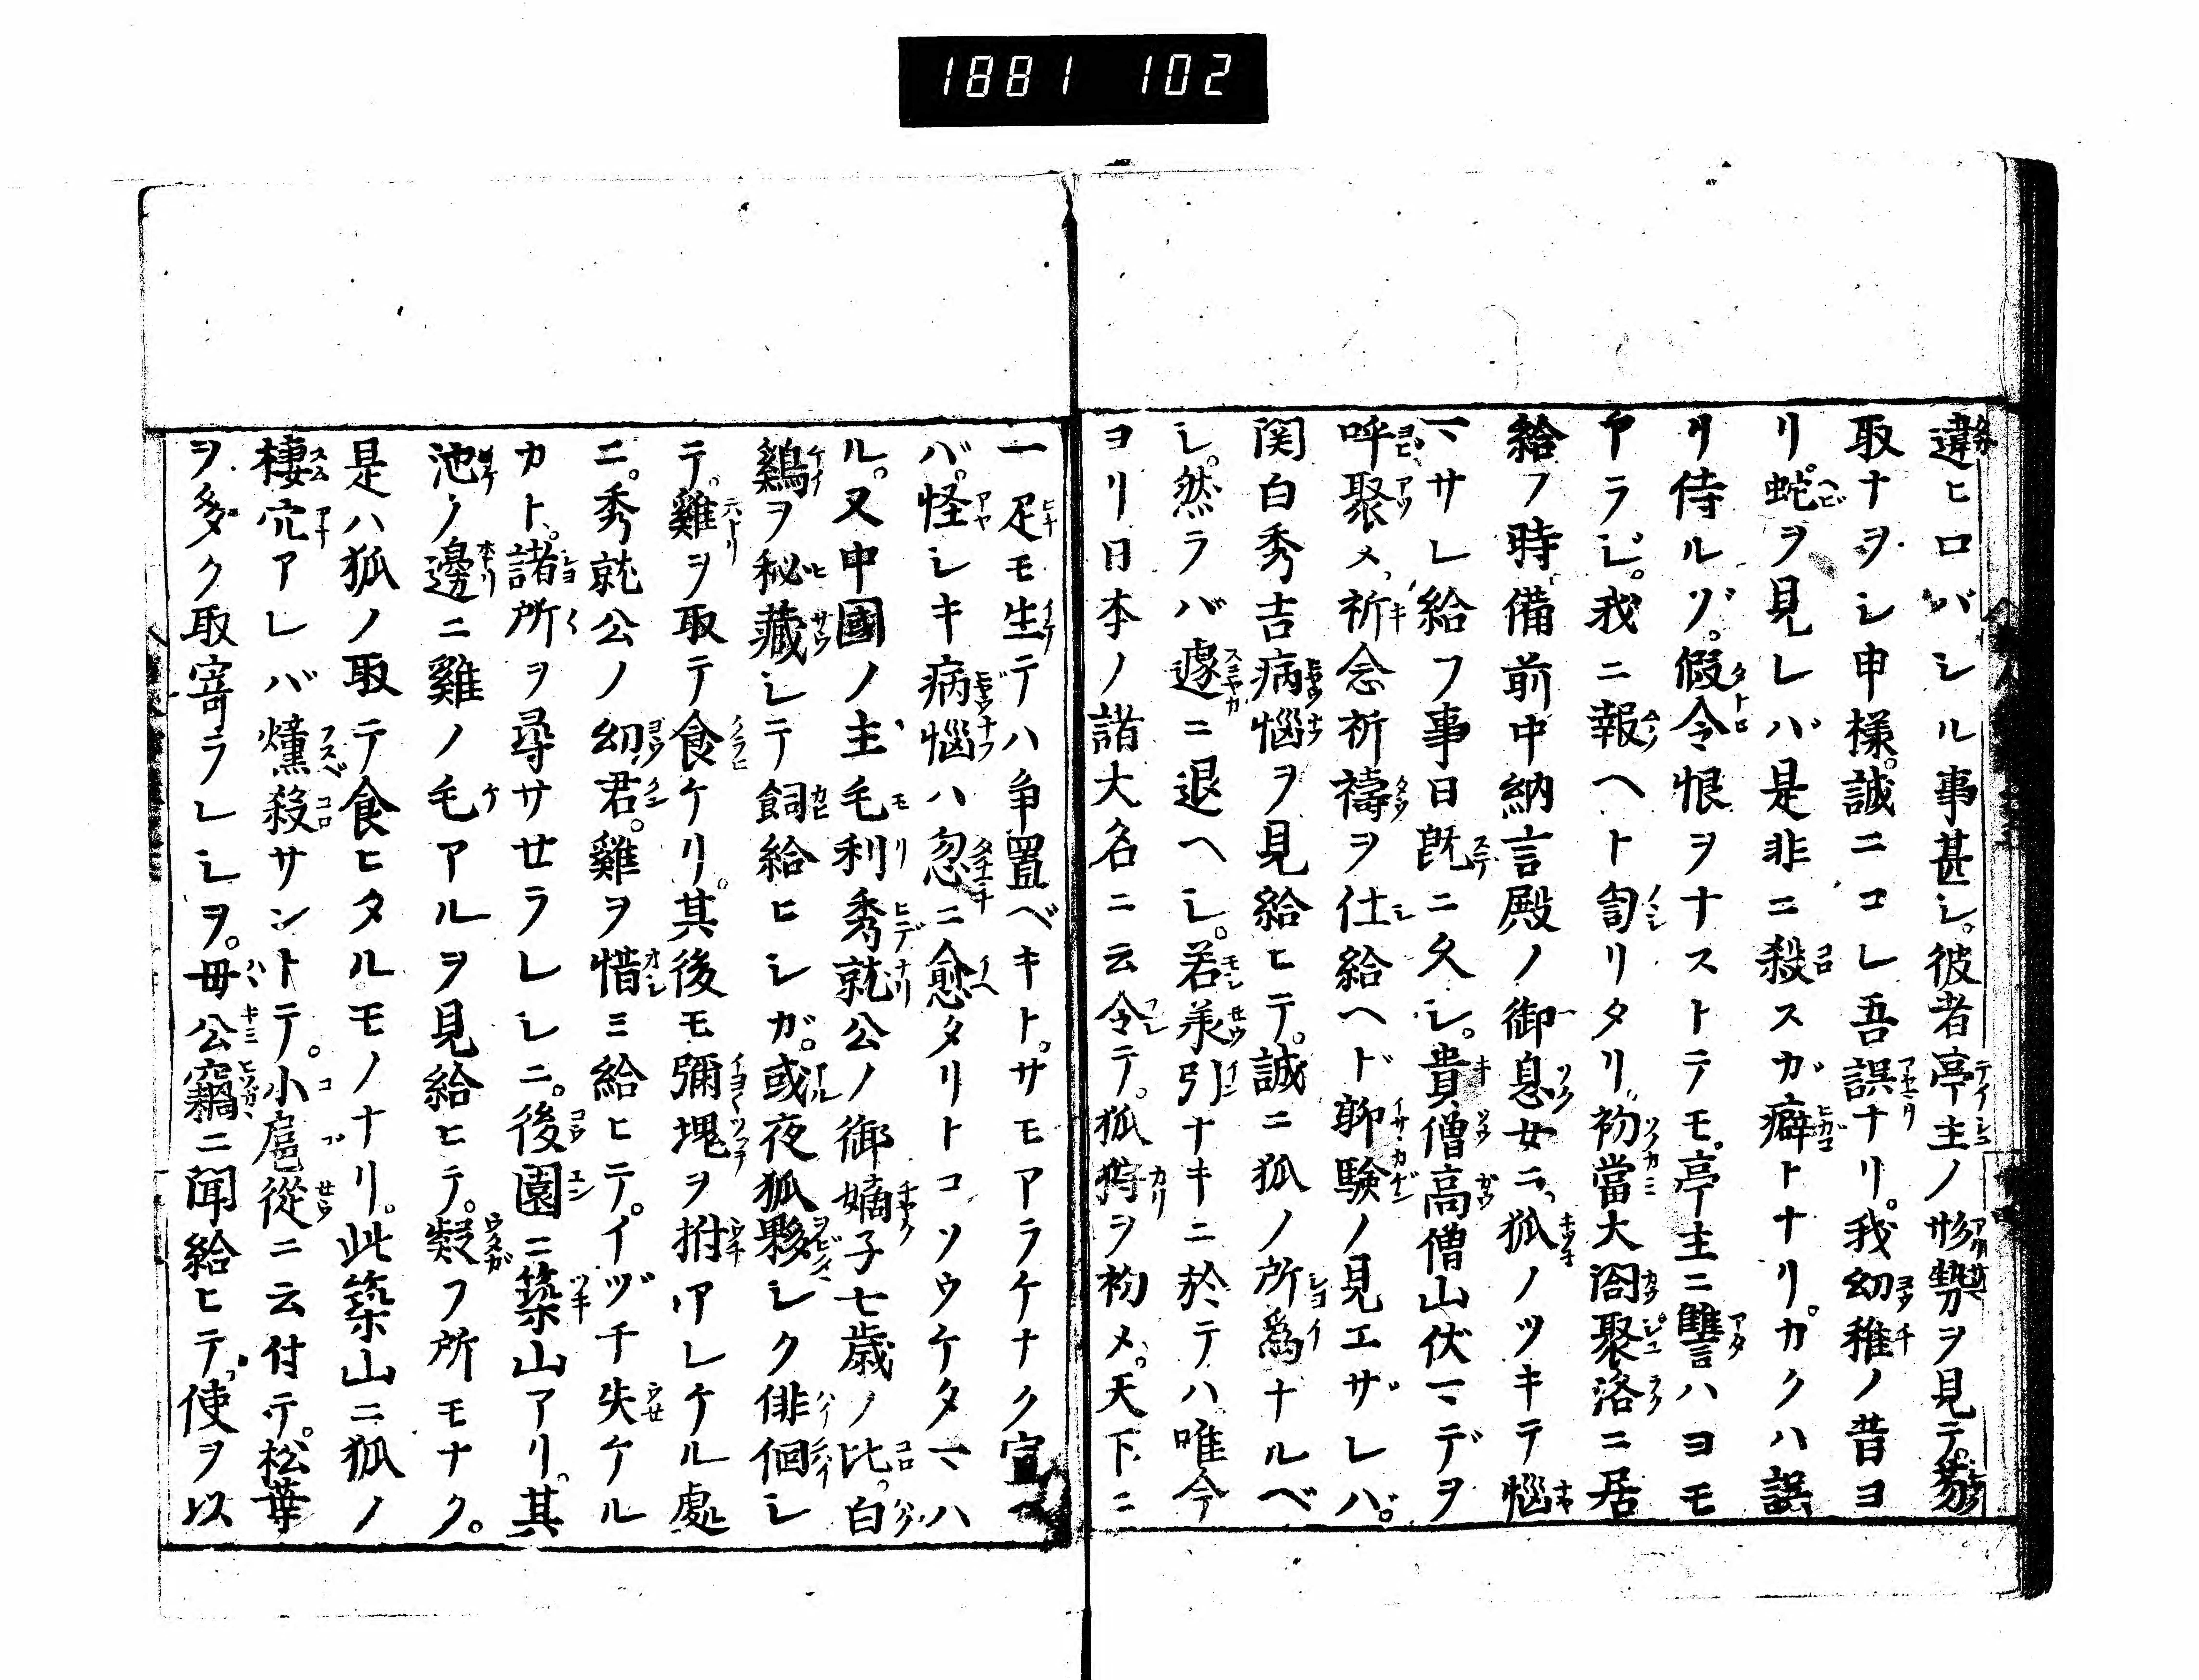 1881 102
違ヒロバシル事甚シ。彼者亭主ノ形勢ヲ見テ。
取ナヲシ申樣。誠ニコレ吾誤ナリ。我幼稚ノ昔ヨ
リ。蛇ヲ見レバ是非ニ殺スガ癖トナリ。カクハ誤
リ侍ルゾ。假令恨ヲナストラモ。亭主ニ讐ハヨモ
ヤラジ。我ニ報ヘト訇リタリ。初當大閤聚洛ニ居
給フ時備前中納言殿ノ御息女ニ、狐ノツキテ惱
マサレ給フ事日既ニ久シ。貴僧高僧山伏マデヲ
呼聚メ、祈念祈禱ヲ仕給ヘド聊驗ノ見エザレバ。
関白秀吉病惱ヲ見給ヒテ。誠ニ狐ノ所爲ナルベ
シ。然ラバ遽ニ退ヘシ。若羕引ナキニ於テハ唯今
ヨリ日本ノ諸大名ニ云令テ。狐狩ヲ初メ。天下ニ
一疋モ生テハ争置ベキト。サモアラケナク宣ヘ
バ。怪シキ病惱ハ忽ニ愈タリトコソウケタマハ
ル。又中國ノ主毛利秀就公ノ御嫡子七歳ノ比。白
鷄ヲ秘藏シテ飼給ヒシガ。或夜狐夥シク俳佪シ
テ。雞ヲ取テ食ケリ。其後モ彌塊ヲ拊アレケル處
ニ。秀就公ノ幼君。雞ヲ惜ミ給ヒテ。イヅチ失ケル
カト。諸所ヲ尋サセラレシニ。後園ニ築山アリ。其
池ノ邊ニ雞ノ毛アルヲ見給ヒテ。疑フ所モナク。
是ハ狐ノ取テ食ヒタルモノナリ。此築山ニ狐ノ
棲穴アレバ燻殺サントテ。小扈從ニ云付テ。松葉
ヲ多ク取寄ラレシヲ。毋公竊ニ聞給ヒテ。使ヲ以